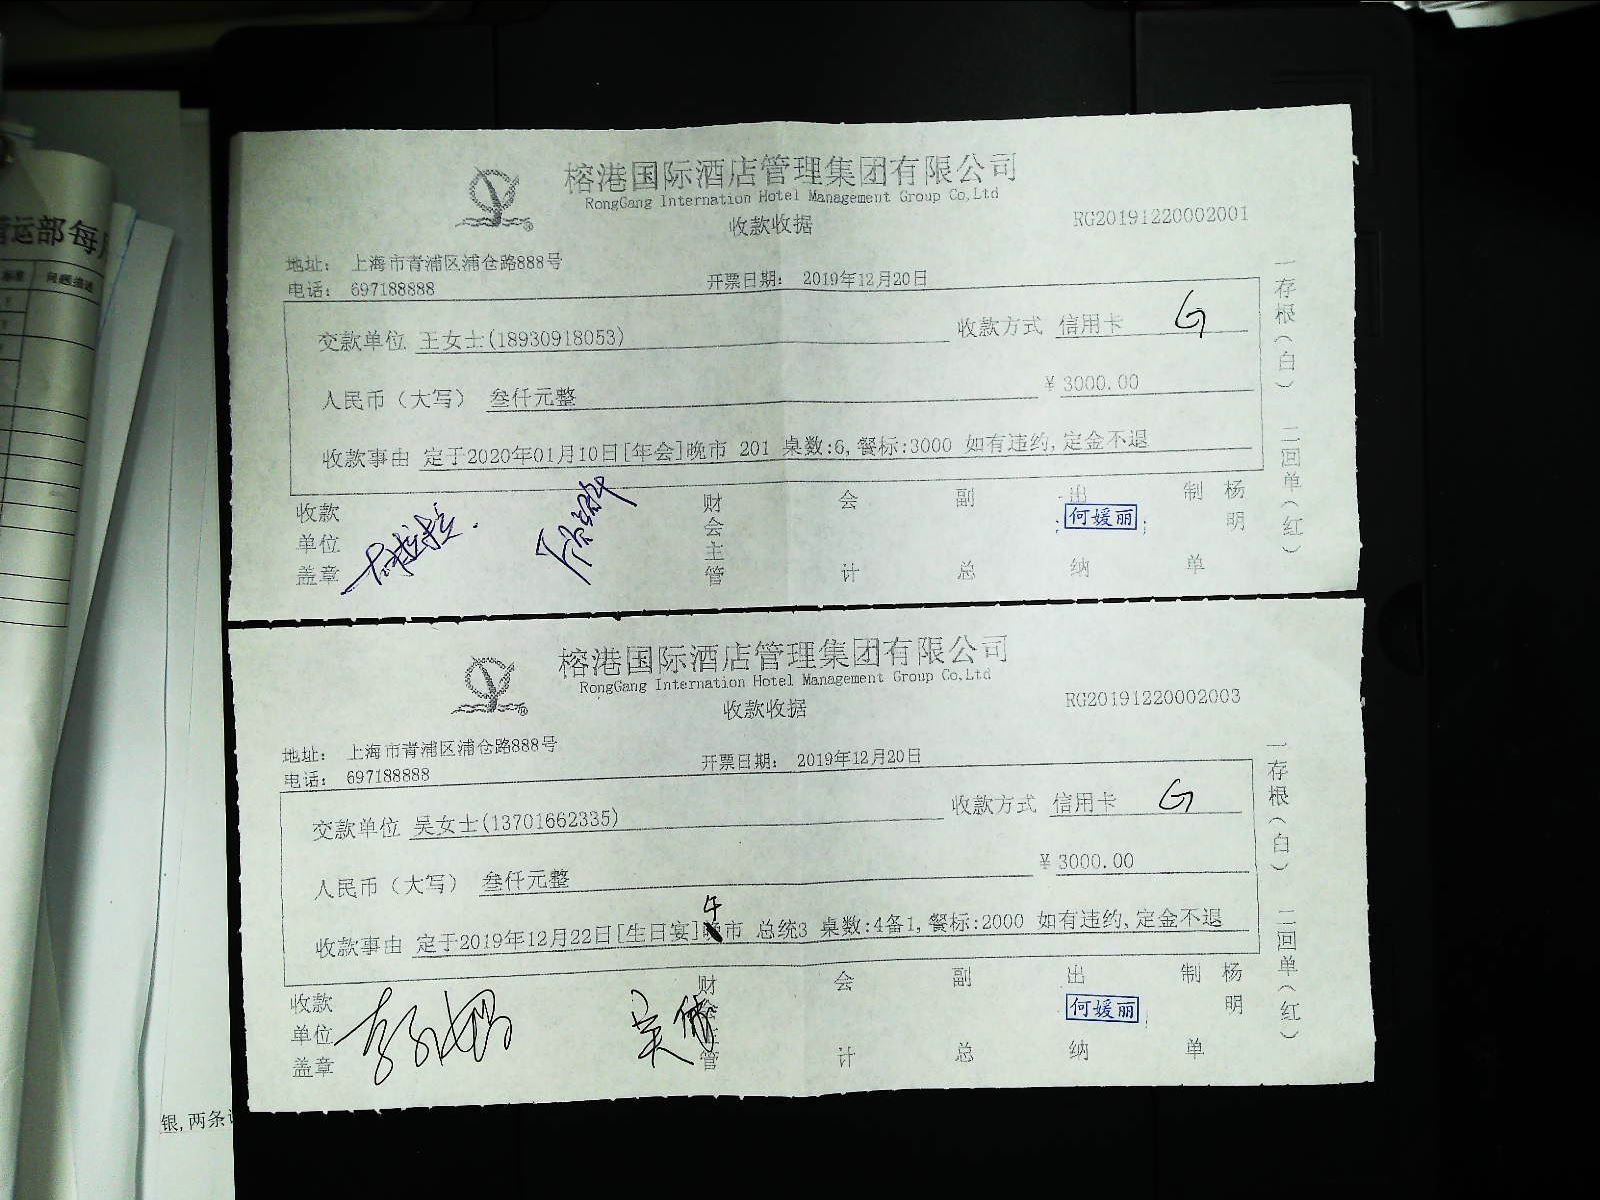 营运部每月
标准 问题描述
银,两条
榕港国际酒店管理集团有限公司
RongGang Internation Hotel Management Group Co,Ltd
收款收据
RG20191220002001
地址: 上海市青浦区浦仓路888号
电话: 697188888
开票日期: 2019年12月20日
交款单位 王女士(18930918053)
收款方式 信用卡 G
人民币(大写) 叁仟元整
¥ 3000.00
收款事由 定于2020年01月10日[年会]晚市 201 桌数:6,餐标:3000 如有违约,定金不退
收款单位盖章
财会主管
会计
副总
出纳
何媛丽
制单
杨明
一存根(白)
二回单(红)
榕港国际酒店管理集团有限公司
RongGang Internation Hotel Management Group Co,Ltd
收款收据
RG20191220002003
地址: 上海市青浦区浦仓路888号
电话: 697188888
开票日期: 2019年12月20日
交款单位 吴女士(13701662335)
收款方式 信用卡 G
人民币(大写) 叁仟元整
¥ 3000.00
午
收款事由 定于2019年12月22日[生日宴]晚市 总统3 桌数:4备1,餐标:2000 如有违约,定金不退
收款单位盖章
财会主管
会计
副总
出纳
何媛丽
制单
杨明
一存根(白)
二回单(红)